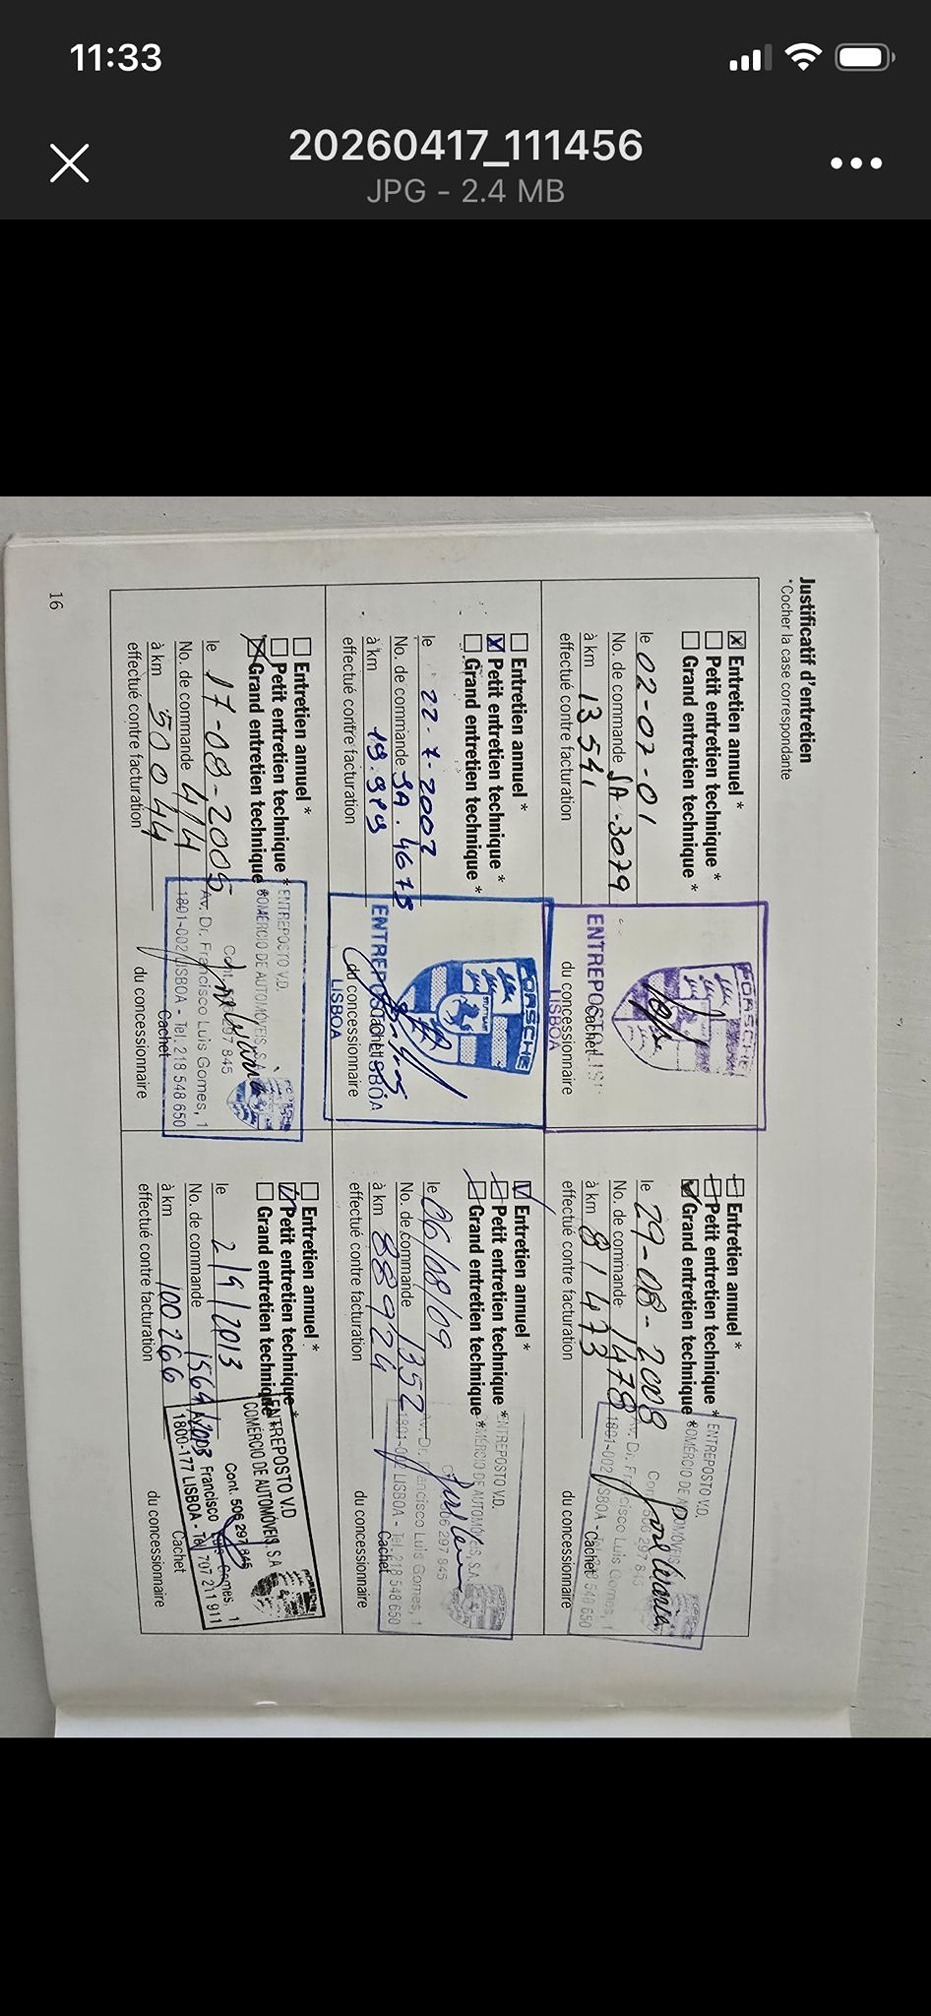 11:33
20260417_111456
JPG - 2.4 MB
Justificatif d'entretien
*Cocher la case correspondante
x Entretien annuel *
Petit entretien technique *
Grand entretien technique *
le 02-07-01
No. de commande SA-3079
à km 13541
effectué contre facturation
PORSCHE
ENTREPOSTO
LISBOA
Cachet
du concessionnaire
Entretien annuel *
x Petit entretien technique *
Grand entretien technique *
le 22-7-2002
No. de commande SA.4675
à km 19.919
effectué contre facturation
PORSCHE
STUTTGART
ENTREPOSTO LISBOA
Cachet
du concessionnaire
LISBOA
Entretien annuel *
Petit entretien technique *
x Grand entretien technique *
le 17-08-2005
No. de commande 414
à km 50044
effectué contre facturation
ENTREPOSTO V.D.
COMÉRCIO DE AUTOMÓVEIS, S.A.
Cont. 506 297 845
Av. Dr. Francisco Luis Gomes, 1
1801-002 LISBOA - Tel. 218 548 650
Cachet
du concessionnaire
Entretien annuel *
Petit entretien technique *
Grand entretien technique *
le 29-08-2008
No. de commande 1478
à km 81473
effectué contre facturation
ENTREPOSTO V.D.
COMÉRCIO DE AUTOMÓVEIS
Av. Dr. Francisco Luis Gomes, 1
1801-002 LISBOA
Cachet
du concessionnaire
Entretien annuel *
Petit entretien technique *
Grand entretien technique *
le 06/08/09
No. de commande 1352
à km 88924
effectué contre facturation
ENTREPOSTO V.D.
COMÉRCIO DE AUTOMÓVEIS, S.A.
506 297 845
Av. Dr. Francisco Luis Gomes, 1
1801-002 LISBOA - Tel. 218 548 650
Cachet
du concessionnaire
Entretien annuel *
Petit entretien technique *
Grand entretien technique *
le 2/9/2013
No. de commande 1564
à km 100266
effectué contre facturation
ENTREPOSTO V.D
COMÉRCIO DE AUTOMÓVEIS, S.A
Cont. 506 297 845
Francisco Luis Gomes, 1
1800-177 LISBOA - Tel. 707 211 911
Cachet
du concessionnaire
16